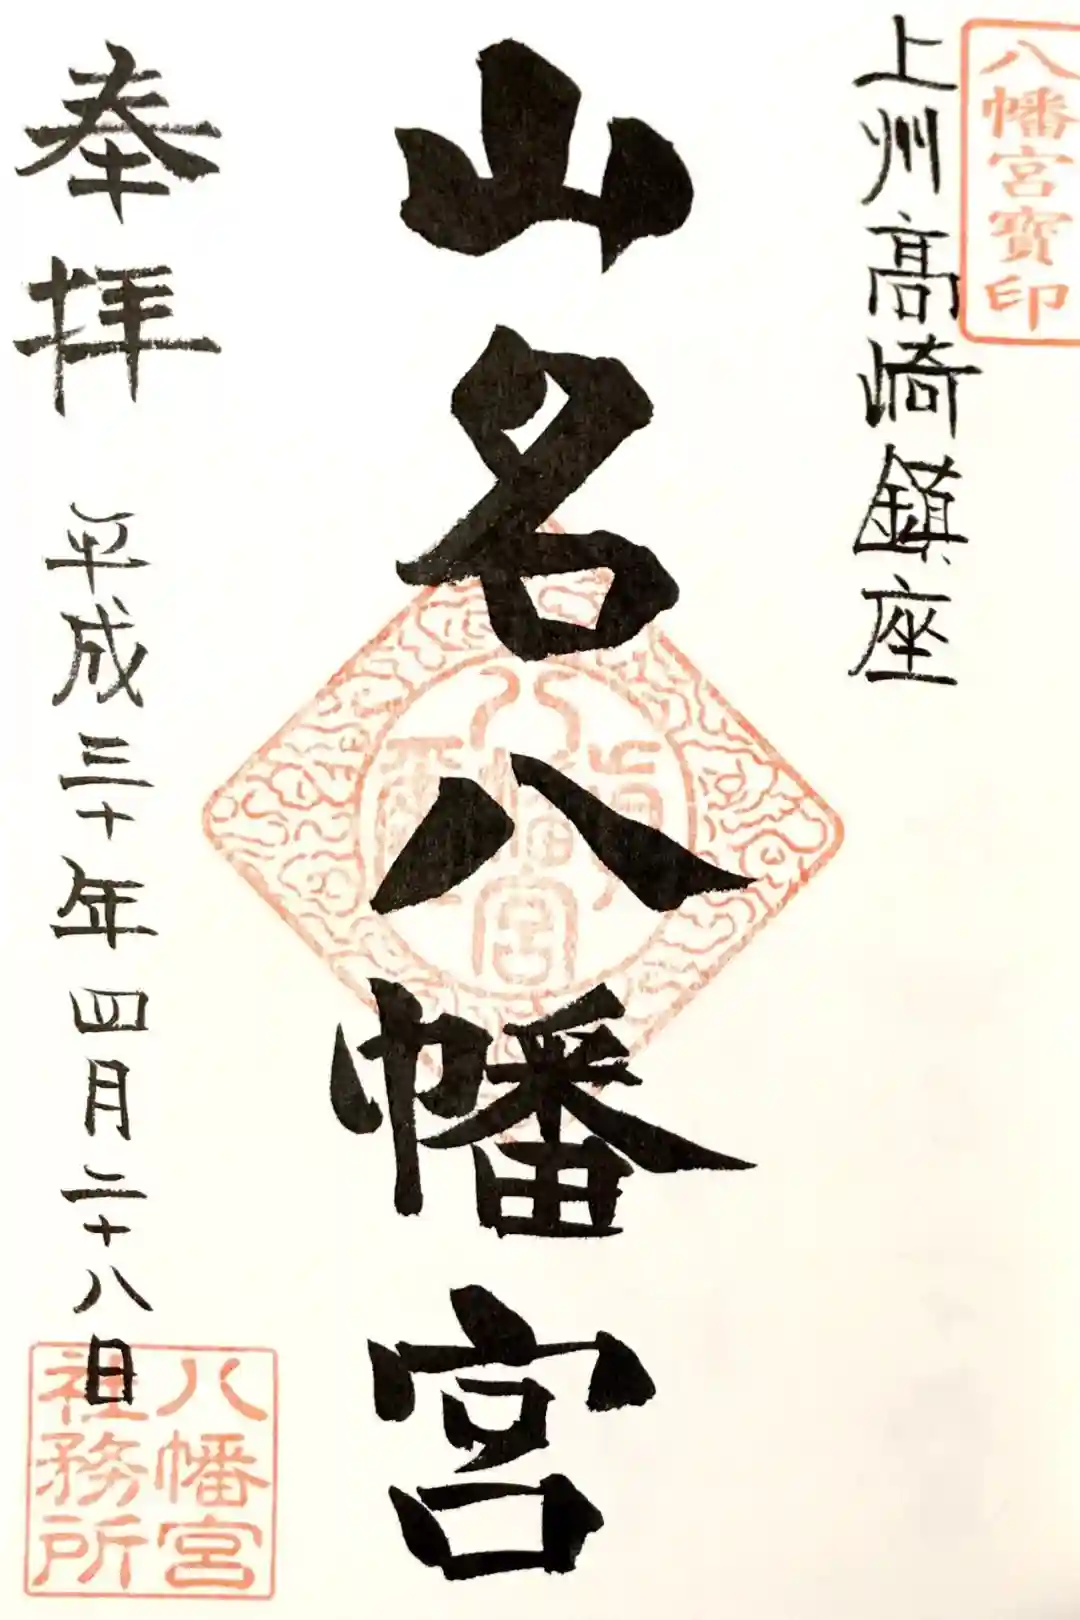 八幡宮寶印
上州高崎鎮座
山名八幡宮
奉拝
平成三十年四月二十八日
八幡宮
社務所